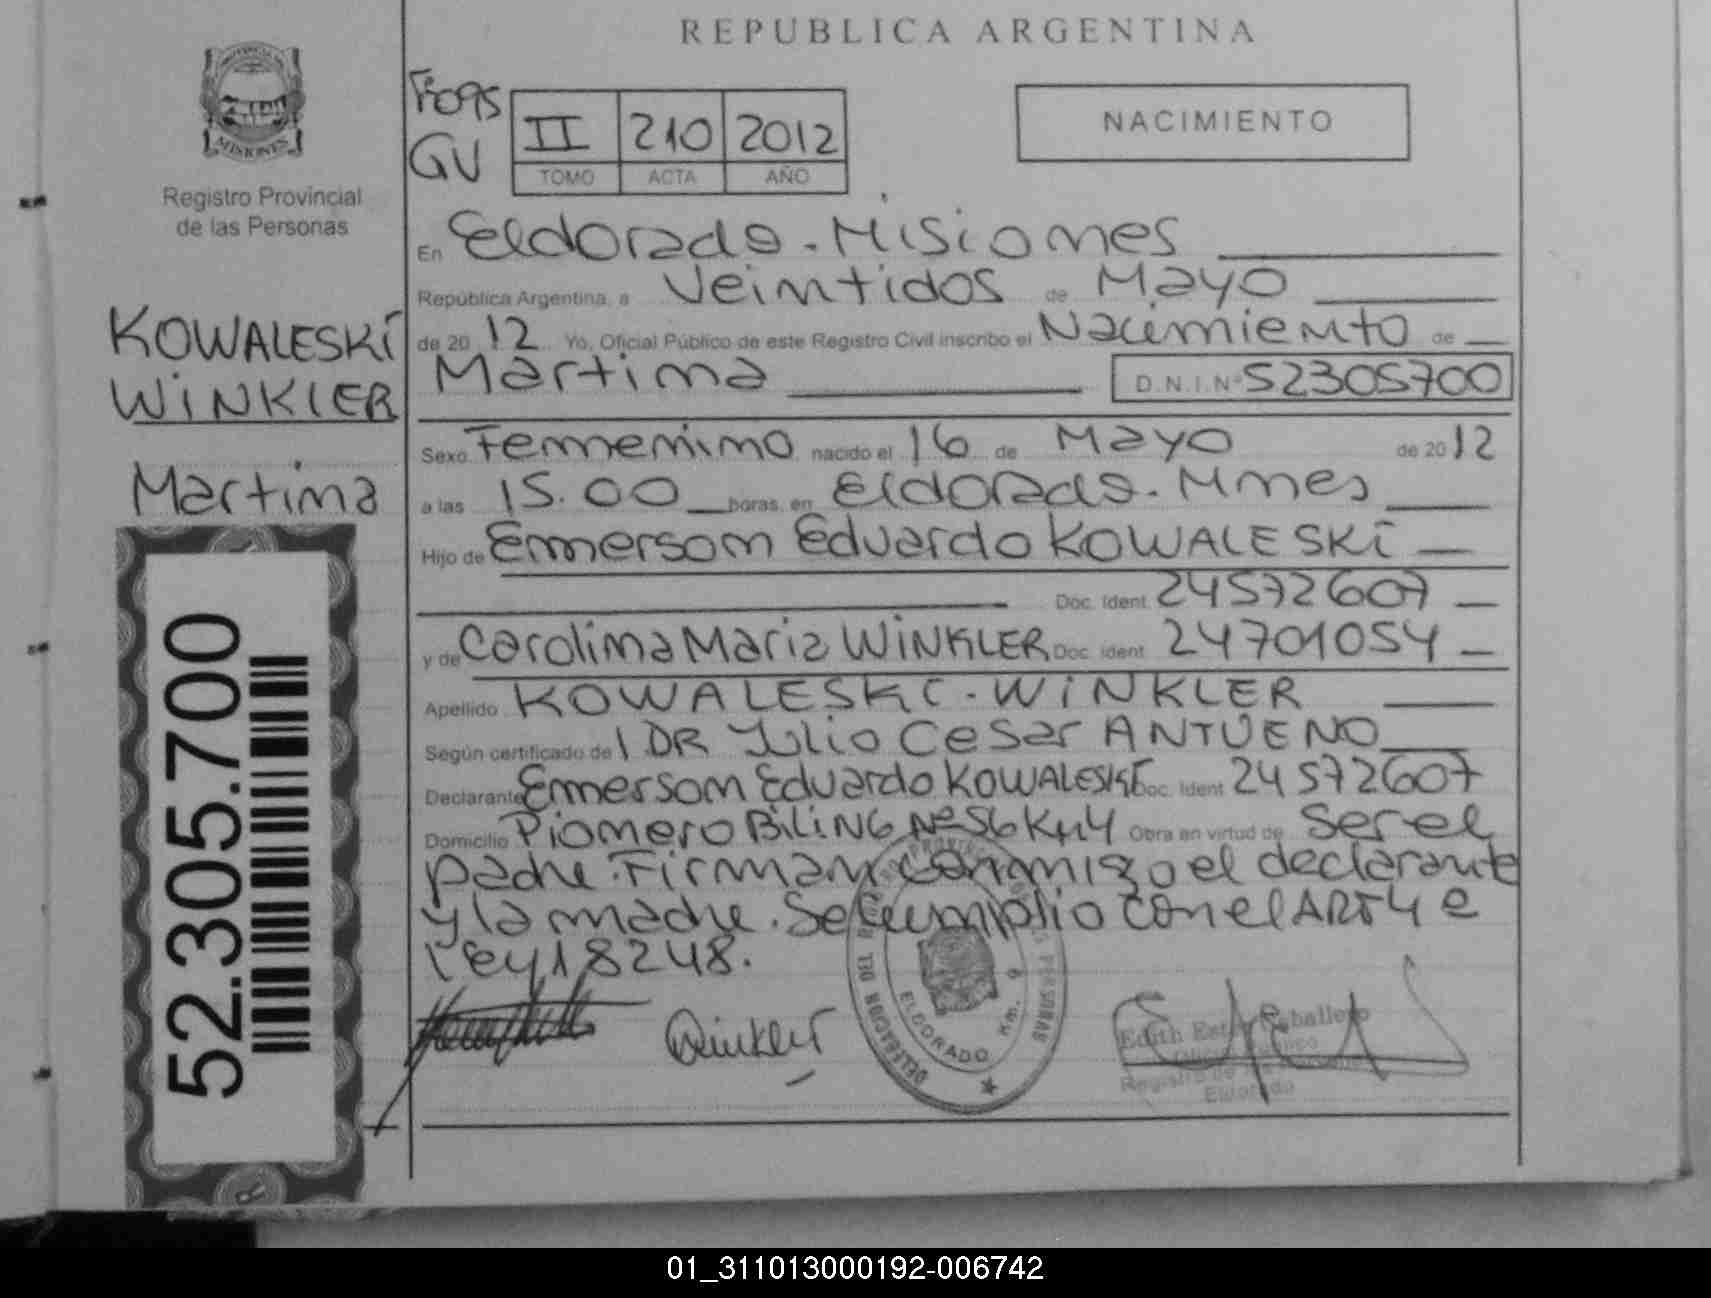 REPUBLICA ARGENTINA
MISIONES
Registro Provincial
de las Personas
Fo95
GV
II 210 2012
TOMO ACTA AÑO
NACIMIENTO
KOWALESKI
WINKLER
Martina
52.305.700
En Eldorado - Misiones
República Argentina, a Veintidos de Mayo
de 2012 Yo, Oficial Público de este Registro Civil inscribo el Nacimiento de
Martina D.N.I.Nº 52305700
Sexo Femenino nacido el 16 de Mayo de 2012
a las 15.00 horas, en Eldorado - Mnes
Hijo de Emerson Eduardo KOWALESKI
Doc. Ident. 24572607
y de Carolina Maria WINKLER Doc. Ident. 24701054
Apellido KOWALESKI - WINKLER
Según certificado del DR Julio Cesar ANTUENO
Declarante Emerson Eduardo KOWALESKI Doc. Ident. 24572607
Domicilio Pionero BILING Nº 56 Km 4 Obra en virtud de Ser el
padre. Firman conmigo el declarante
y la madre. Se cumplio con el ART 4 e
Ley 18248.
Winkler
DELEGACION DEL REGISTRO PROVINCIAL DE LAS PERSONAS
ELDORADO Km. 9
Edith Ester Caballero
Oficial Público
Registro de las Personas
Eldorado
01_311013000192-006742